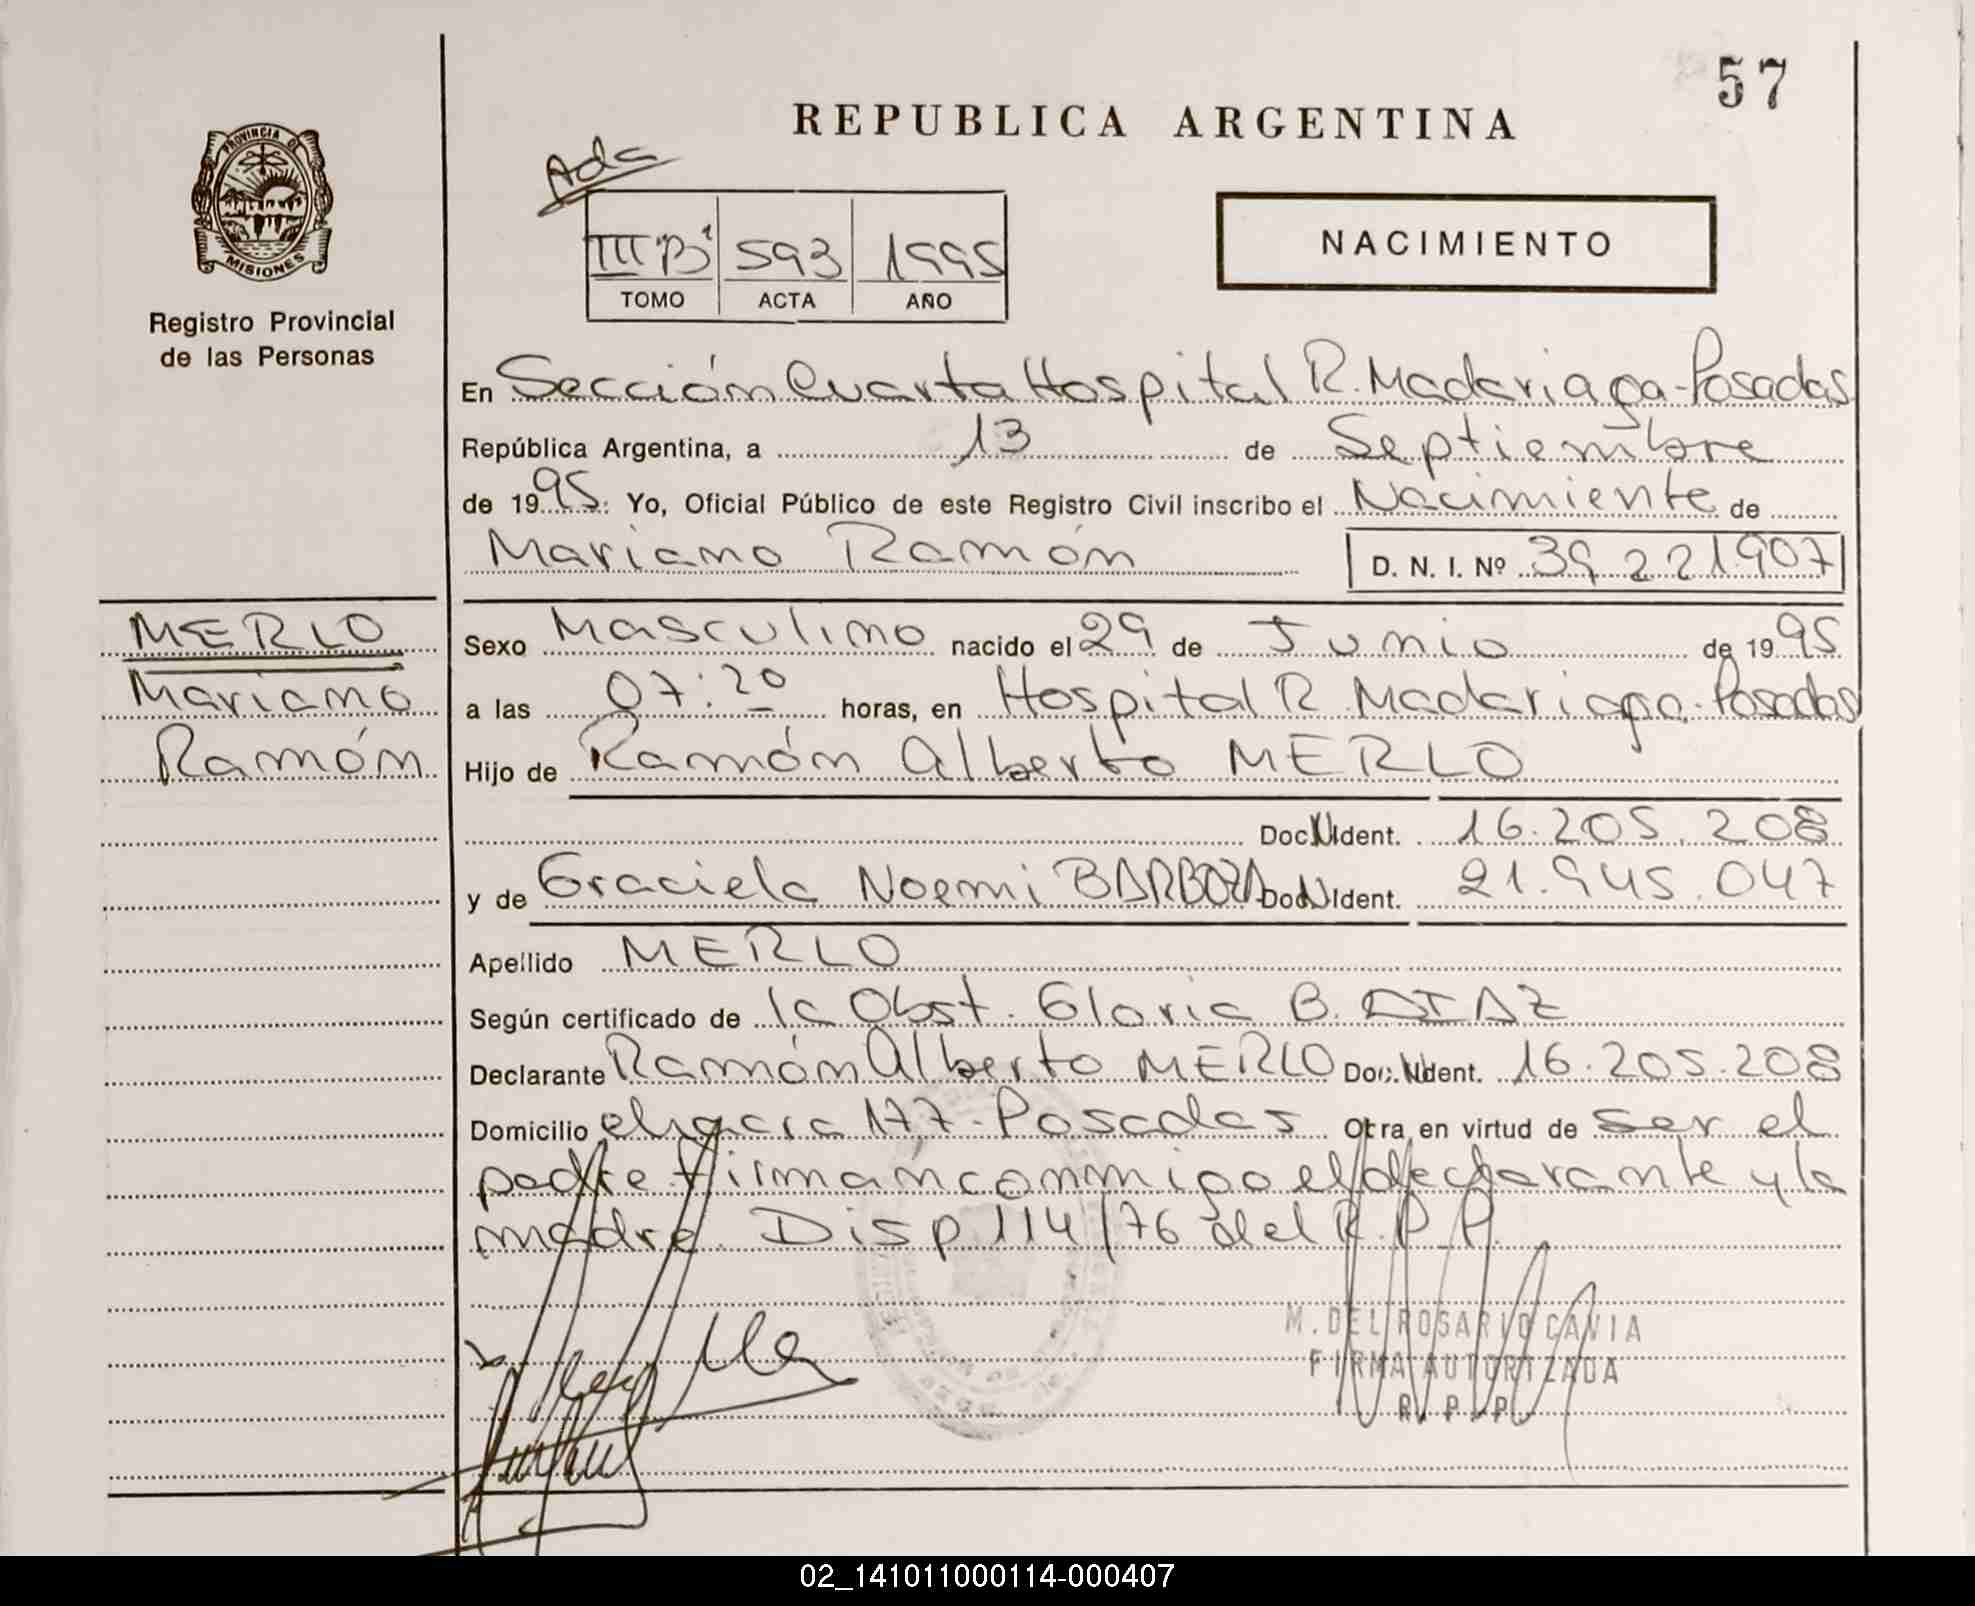 57
REPUBLICA ARGENTINA
Adc
PROVINCIA DE
MISIONES
III "B" 593 1995
TOMO ACTA AÑO
NACIMIENTO
Registro Provincial
de las Personas
En Sección Cuarta Hospital R. Madariaga - Posadas
República Argentina, a 13 de Septiembre
de 1995. Yo, Oficial Público de este Registro Civil inscribo el Nacimiento de
Mariano Ramón D. N. I. Nº 39221907
MERLO
Mariano
Ramón
Sexo Masculino nacido el 29 de Junio de 1995
a las 07:20 horas, en Hospital R. Madariaga - Posadas
Hijo de Ramón Alberto MERLO
Doc. Ident. 16.205.208
y de Graciela Noemi BARBOZA Doc. Ident. 21.945.047
Apellido MERLO
Según certificado de la Obst. Gloria B. DIAZ
Declarante Ramón Alberto MERLO Doc. Ident. 16.205.208
Domicilio 177 - Posadas Otra, en virtud de ser el
padre firman conmigo el declarante y la
madre. Disp 114/76 del R.P.P.
M. DEL ROSARIO CAVIA
FIRMA AUTORIZADA
R. P. P.
02_141011000114-000407